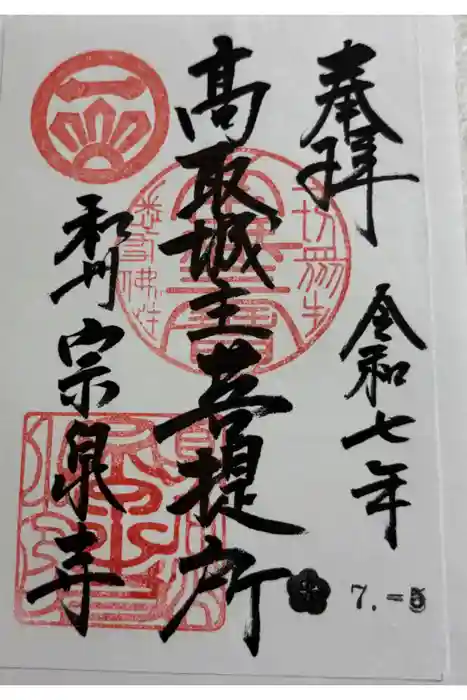 奉拝
令和七年
7.
高取城主菩提所
和州 宗泉寺